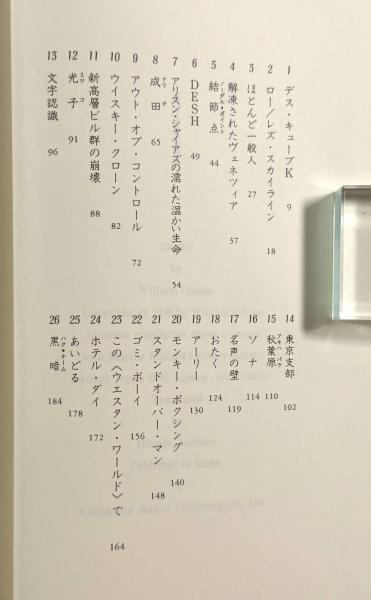 1 デス・キューブK 9
2 ロー/レズ・スカイライン 18
3 ほとんど一般人 27
4 解凍されたヴェネツィア 37
ノーダル・ポイント
5 結節点 44
6 DESH 49
7 アリスン・シャイアズの濡れた温かい生命 54
ナリタ
8 成田 65
9 アウト・オブ・コントロール 72
10 ウイスキー・クローン 82
11 新高層ビル群の崩壊 88
ミツコ
12 光子 91
13 文字認識 96
14 東京支部 102
アキハバラ
15 秋葉原 110
16 ソナ 114
17 名声の壁 119
18 おたく 124
19 アーリー 130
20 モンキー・ボクシング 140
21 スタンドオーバー・マン 148
22 ゴミ・ボーイ 156
23 この〈ウエスタン・ワールド〉で 164
24 ホテル・ダイ 172
25 あいどる 178
ハク・ナーム
26 黒暗 184